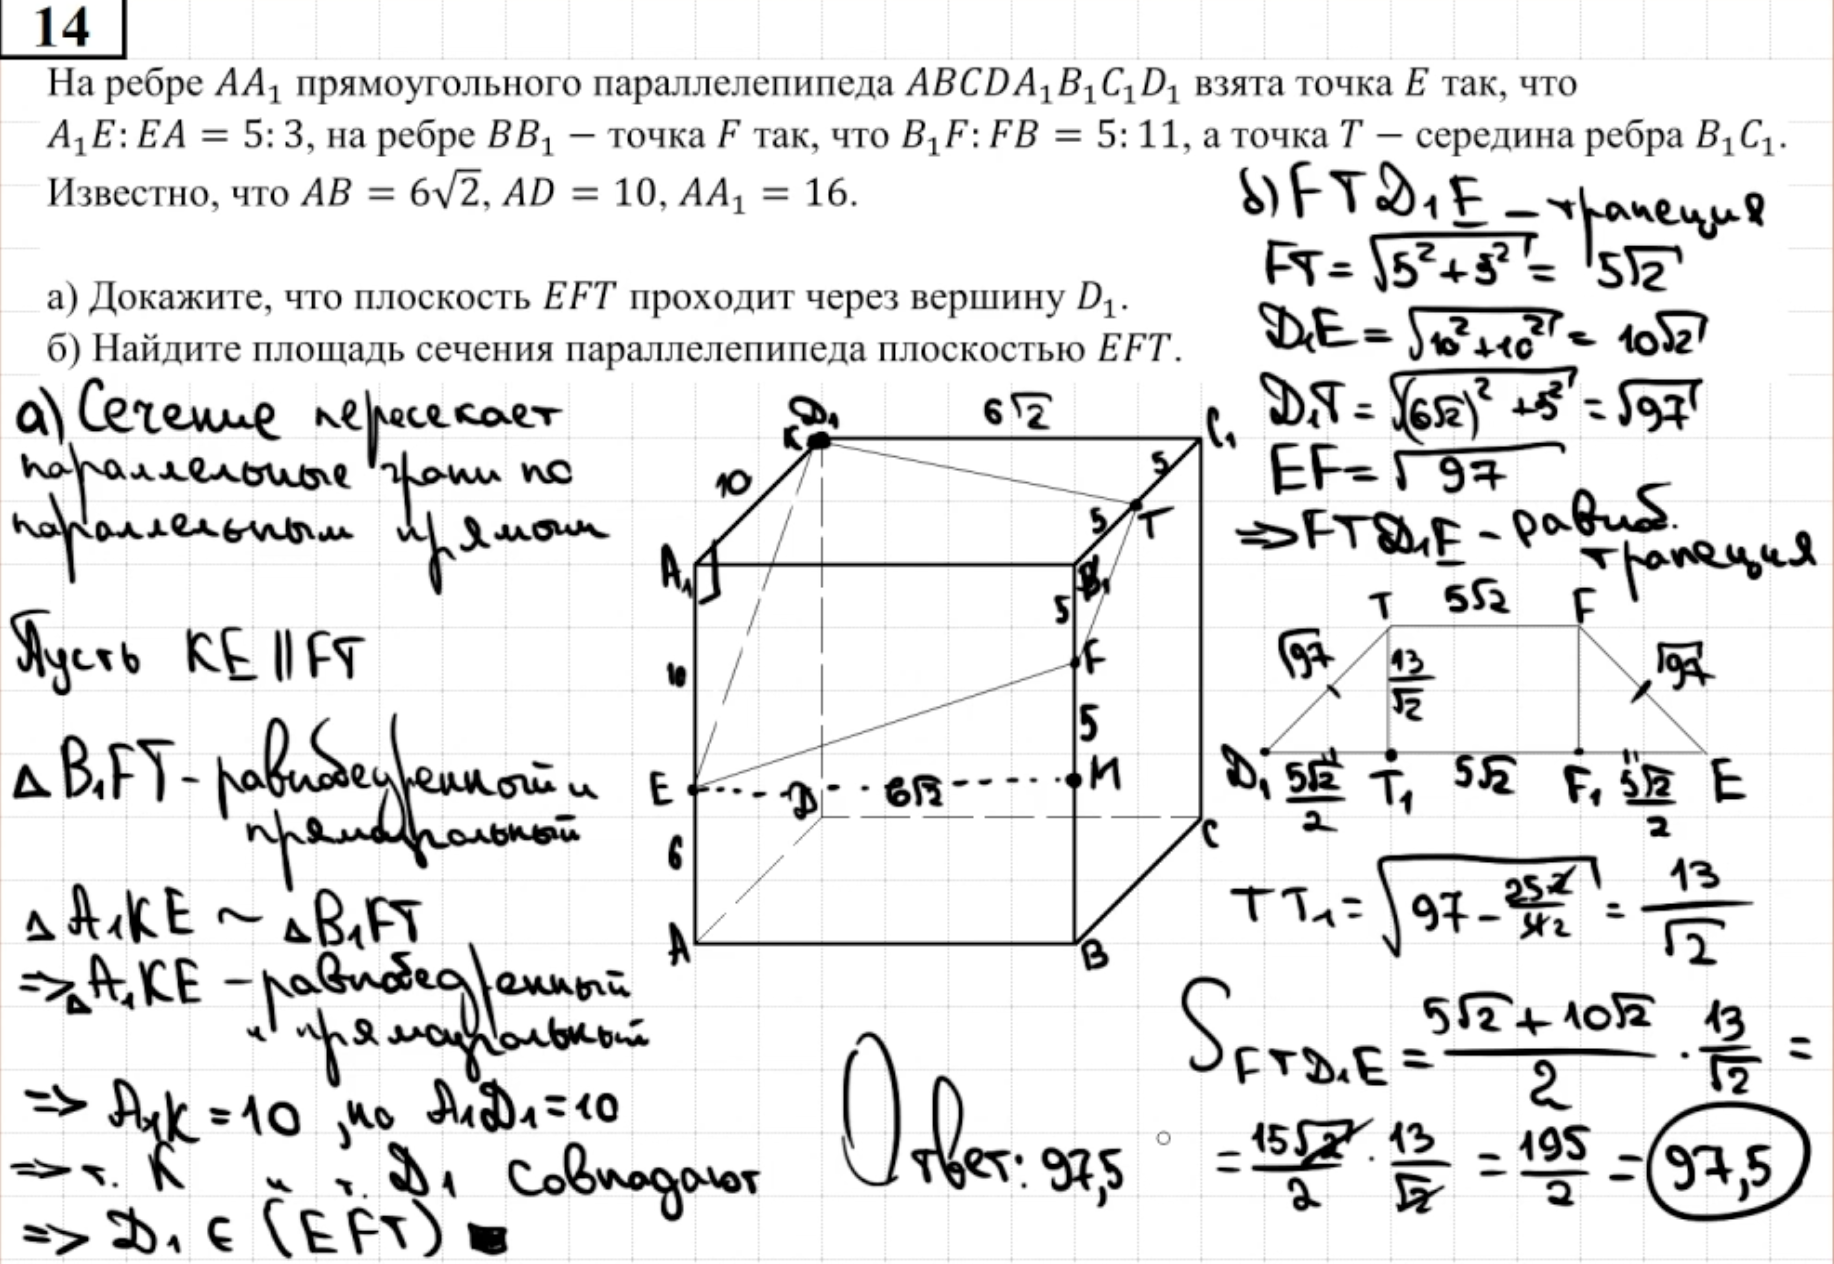 14
На ребре AA₁ прямоугольного параллелепипеда ABCDA₁B₁C₁D₁ взята точка E так, что
A₁E: EA = 5: 3, на ребре BB₁ − точка F так, что B₁F: FB = 5: 11, а точка T − середина ребра B₁C₁.
Известно, что AB = 6√2, AD = 10, AA₁ = 16.
а) Докажите, что плоскость EFT проходит через вершину D₁.
б) Найдите площадь сечения параллелепипеда плоскостью EFT.
а) Сечение пересекает
параллельные грани по
параллельным прямым
Пусть KE || FT
Δ B₁FT - равнобедренный и
прямоугольный
Δ A₁KE ~ Δ B₁FT
=> Δ A₁KE - равнобедренный
и прямоугольный
=> A₁K = 10, но A₁D₁ = 10
=> т. K и т. D₁ совпадают
=> D₁ ∈ (EFT)
K D₁ 6√2 C₁
10 5
5 T
A₁ B₁
5
10 F
5
E D 6√2 M
6 C
A B
Ответ: 97,5
б) FTD₁E - трапеция
FT = √(5² + 5²) = 5√2
D₁E = √(10² + 10²) = 10√2
D₁T = √((6√2)² + 5²) = √97
EF = √97
=> FTD₁E - равноб.
трапеция
T 5√2 F
√97 13/√2 √97
D₁ 5√2/2 T₁ 5√2 F₁ 5√2/2 E
TT₁ = √(97 - 25·2/4 2) = 13/√2
S FTD₁E = (5√2 + 10√2)/2 · 13/√2 =
= 15√2/2 · 13/√2 = 195/2 = 97,5